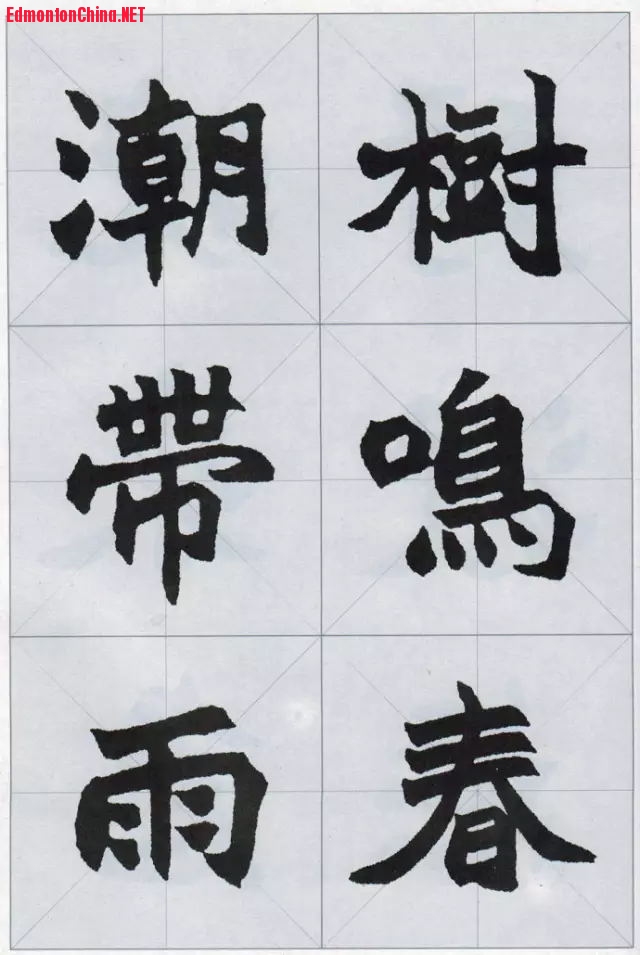 EdmontonChina.NET
樹鳴春
潮帶雨